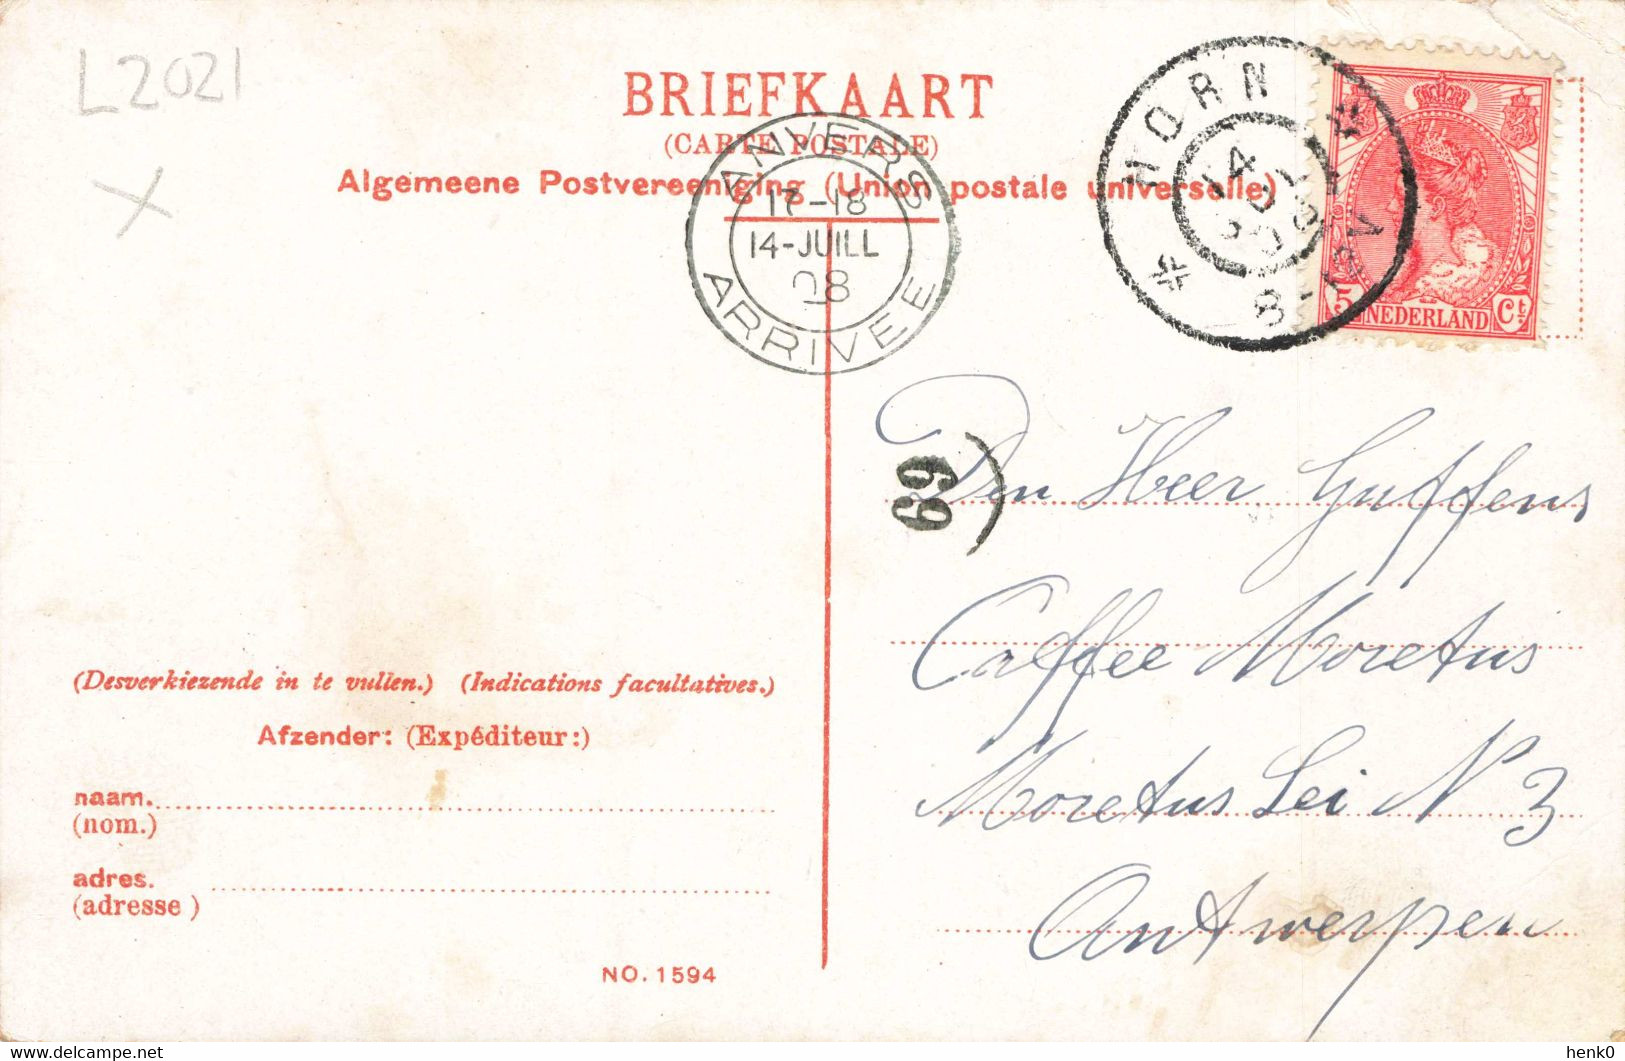 L2021
X
BRIEFKAART
(CARTE POSTALE)
Algemeene Postvereeniging (Union postale universelle)
ANVERS
17-18
14-JUILL
08
ARRIVEE
HORN
14
JUL
08
8-
5 NEDERLAND Ct
69
Den Heer Guffens
Caffee Moretus
Moretus Lei N 3
Antwerpen
(Desverkiezende in te vullen.) (Indications facultatives.)
Afzender: (Expéditeur:)
naam.
(nom.)
adres.
(adresse )
NO. 1594
delcampe.net
henk0